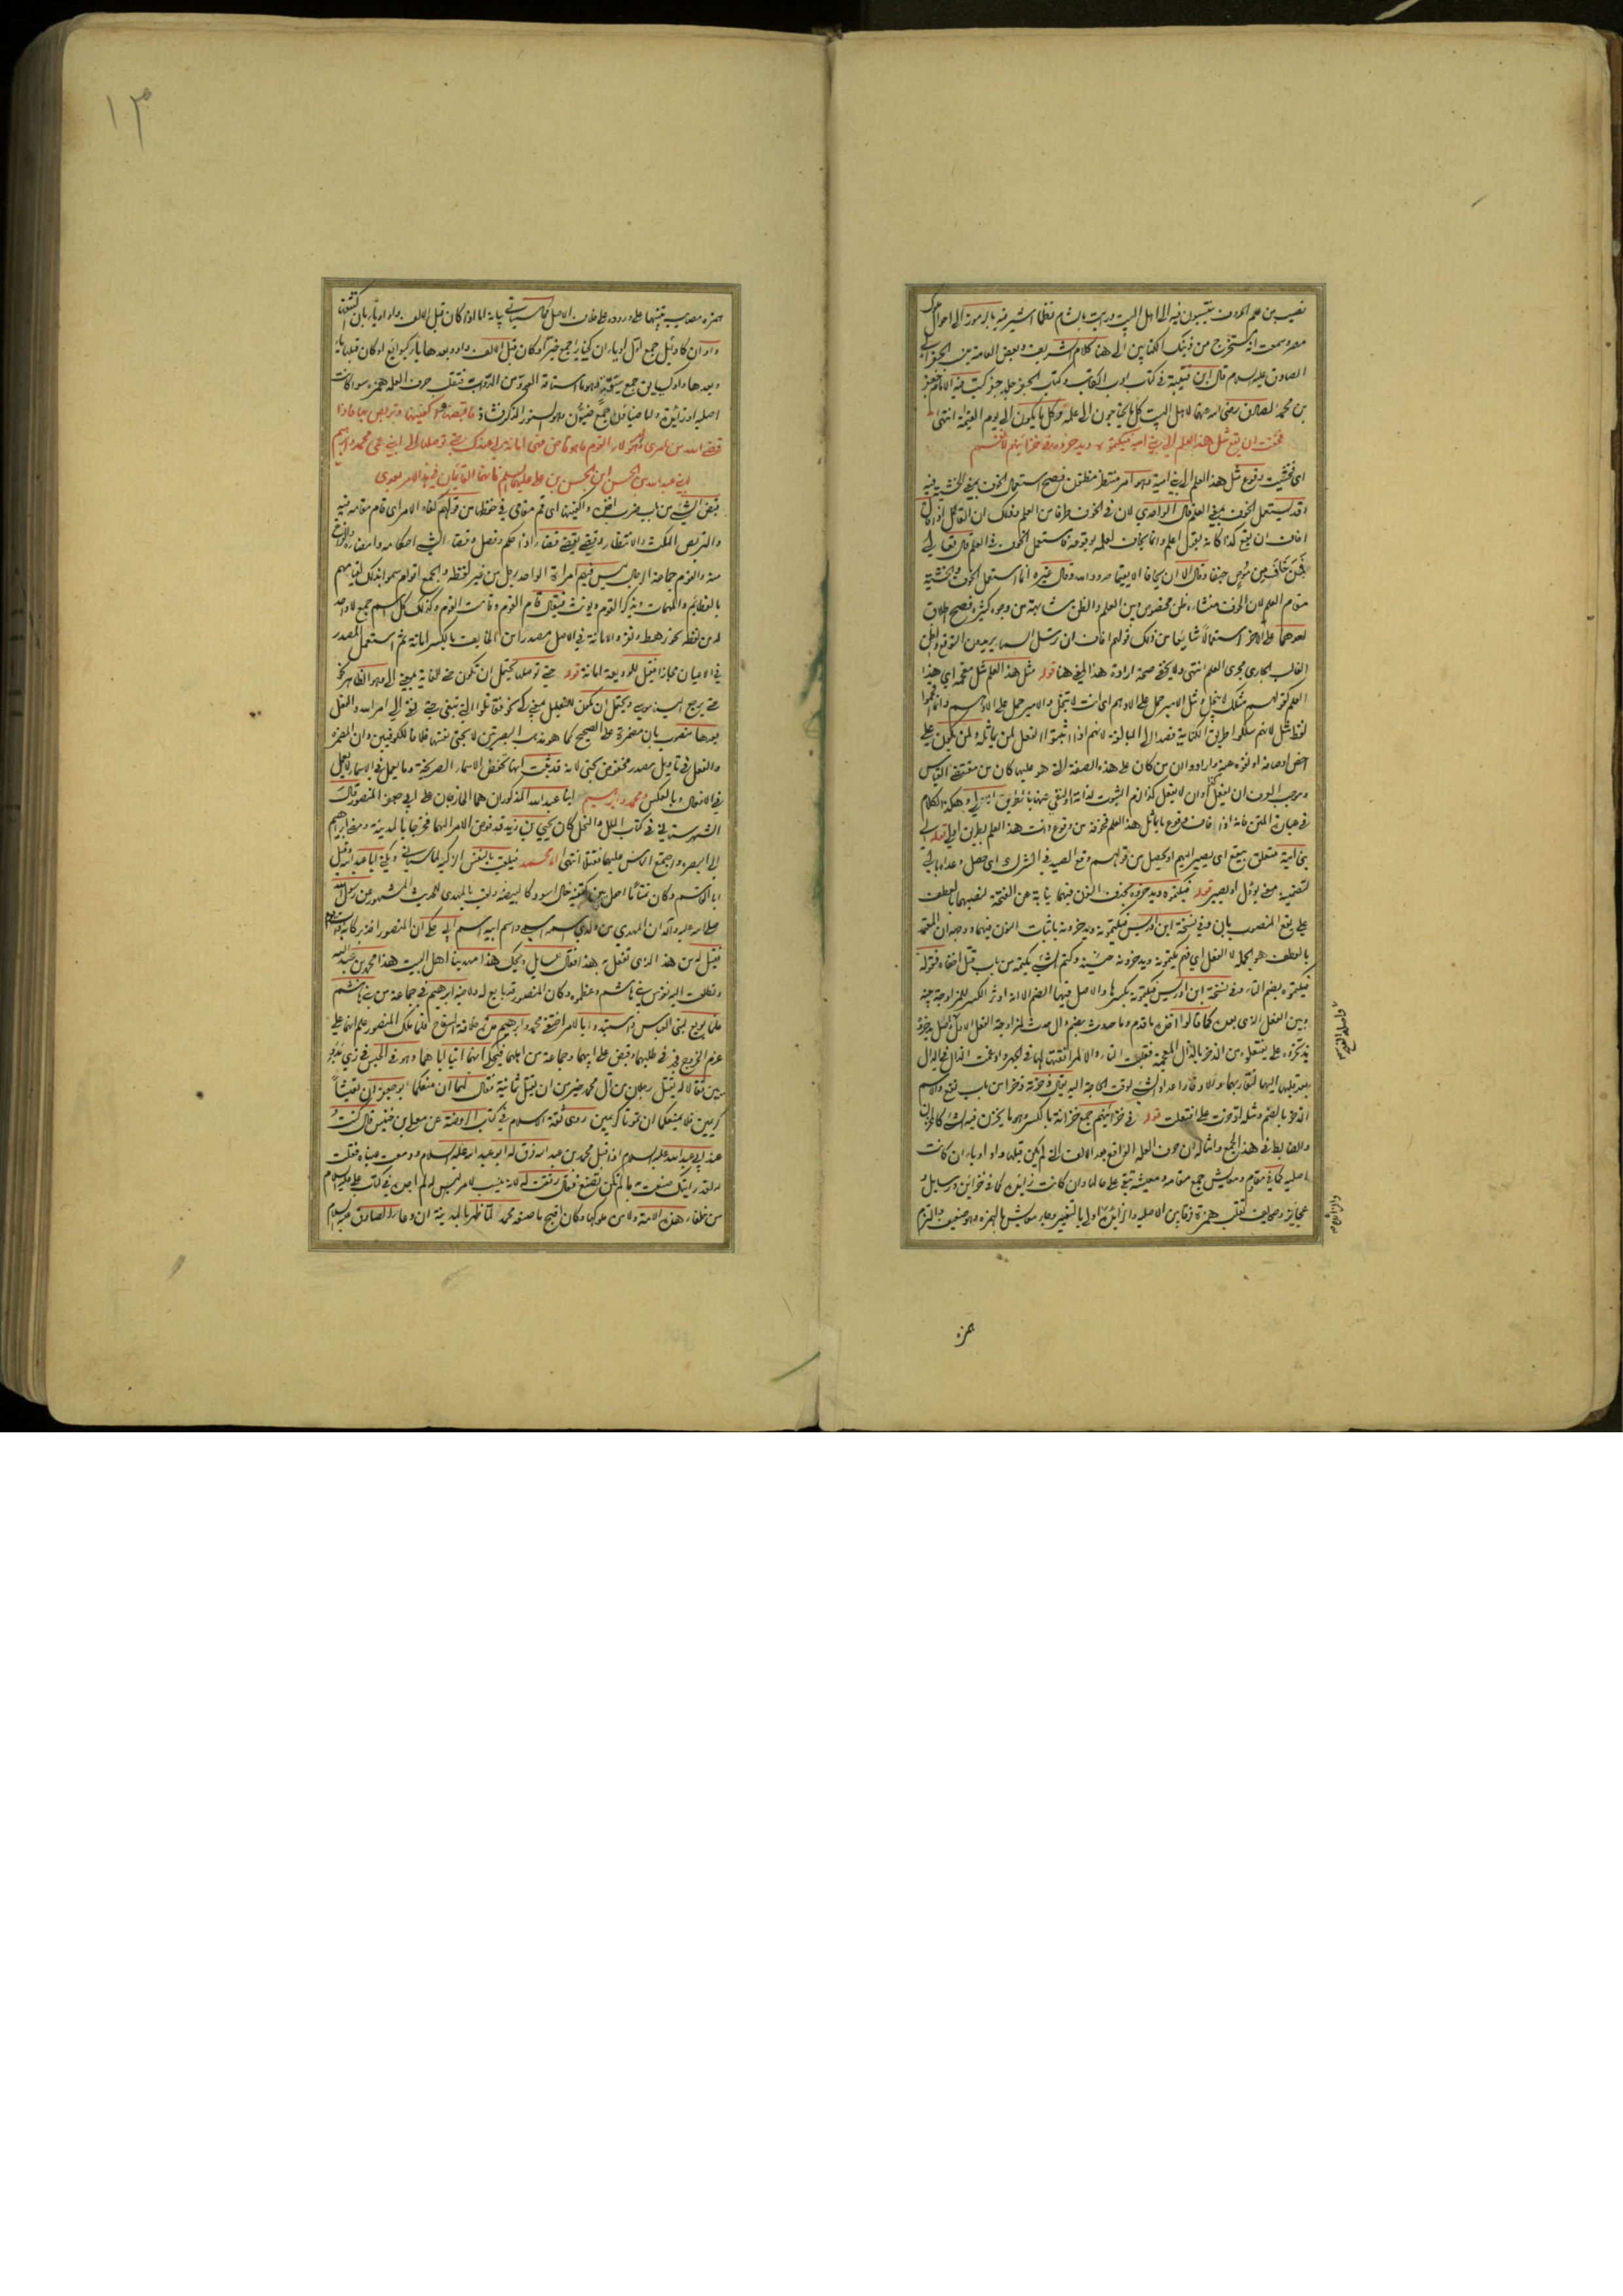 نصيب من علم الحروف ينتسبون فيه الى اهل البيت ورايت بالشام نظما اشير فيه بالرموز الى احوال ملوك
مصر وسمعت انه مستخرج من ذينك الكتابين الى هنا كلام الشريف وبعض العامة ينسب الجفر الى
الصادق عليه السلام قال ابن قتيبة في كتاب ادب الكاتب وكتاب الجفر جلد جفر كتب فيه الامام جعفر
بن محمد الصادق رضى الله عنهما لاهل البيت كل ما يحتاجون الى علمه وكل ما يكون الى يوم القيمة انتهى
فخفت ان يقع مثل هذا العلم الى بنى امية فيكتموه ويدخروه فى خزائنهم لانفسهم
اى فخشيت وقوع مثل هذا العلم الى بنى امية وهو امر منتظر مظنون فصح استعمال الخوف بمعنى الخشية فيه
وقد يستعمل الخوف بمعنى العلم قال الواحدي لان في الخوف طرفا من العلم وذلك ان القائل اذا قال
اخاف ان يقع كذا كانه يقول اعلم وانما يخاف لعلمه بوقوعه فاستعمل الخوف في العلم قال تعالى
فمن خاف من موص جنفا وقال الا ان يخافا الا يقيما حدود الله وقال غيره انما استعمل الخوف والخشية
مقام العلم لان الخوف منشاؤه ظن مخصوص وبين العلم والظن مشابهة من وجوه كثيرة فصح اطلاق
احدهما على الاخر استعمالا شايعا من ذلك قولهم اخاف ان ترسل السماء يريدون التوقع والظن
الغالب الجارى مجرى العلم انتهى ولا يخفى صحة ارادة هذا المعنى هنا قوله مثل هذا العلم مثل مقحمة اى هذا
العلم كقولهم مثلك لا يبخل ومثل الامير حمل على الادهم اى انت لا تبخل والامير حمل على الادهم وانما اقحموا
لفظ مثل لانهم سلكوا طريق الكناية قصدا الى المبالغة لانهم اذا اثبتوا الفعل لمن يماثله ولمن يكون على
اخص اوصافه او نفوه عنه وارادوا ان من كان على هذه الصفة التى هو عليها كان من مقتضى القياس
وموجب العرف ان يفعل كذا وان لا يفعل كذا لزم الثبوت لذاته او النفى عنها بطريق اولى وهكذا الكلام
فى عبارة المتن فانه اذا خاف وقوع ما يماثل هذا العلم فخوفه من وقوع ذات هذا العلم بطريق اولى قوله الى
بنى امية متعلق بيقع اى يصير اليهم او يحصل من قولهم وقع الصيد فى الشرك اى حصل وعداه بالى
لتضمينه معنى يؤول او يصير قوله فيكتموه ويدخروه بحذف النون فيهما نيابة عن الفتحة لنصبهما بالعطف
على يقع المنصوب بان وفى نسخة ابن ادريس فيكتمونه ويدخرونه باثبات النون فيهما ووجهه ان المعتمد
بالعطف هو الجملة لا الفعل اى فهم يكتمونه ويدخرونه حينئذ وكتم الشئ يكتمه من باب قتل اخفاه فقوله
فيكتموه بضم التاء وفى نسخة ابن ادريس فيكتموه بكسرها والاصل فيهما الضم الا انه اوثر الكسر للمزاوجة بينه
وبين الفعل الذى بعده كما قالوا اخذه ما قدم وما حدث بضم دال حدث لمزاوجة الفعل الاول واصل يدخروه
يذتخروه على يفتعلوه من الذخر بالذال المعجمة فقلبت التاء دالا لموافقتها لها فى الجهر وادغمت الذال فى الدال
بعد قلبها اليها لتقاربهما وذلك اعداد الشئ لوقت الحاجة اليه يقال ذخرته ذخرا من باب نفع والاسم
الذخر بالضم ومثله ادخرت على افتعلت قوله فى خزائنهم جمع خزانة بالكسر وهو ما يخزن فيه الشئ كالمخزن
والضابط فى هذا الجمع وامثاله ان حرف العلة الواقع بعد الالف التى لم يكن قبلها واو او ياء ان كانت
اصلية كما فى مقاوم ومعايش جمع مقامة ومعيشة تبقى على حالها وان كانت زايدة كما فى خزاين ورسايل و
عجايز وصحايف تقلب همزة فرقا بين الاصلية والزايدة اولى بالتغيير وجاء معائش بالهمزة وهو ضعيف والتزم
همزة
همزة مصايب تنبيها على وروده على خلاف الاصل كما سياتى بيانه اما اذا كان قبل الالف واو او ياء
واوان كاوائل جمع اول او ياءان كخيائر جمع خير او كان قبل الالف واو وبعدها ياء كبوائع او كان قبلها ياء
وبعدها واو كسيايق جمع سيقة وهو ما استاقه العدو من الدواب فتقلب حرف العلة همزة سواء كانت
اصلية او زائدة واما ضياون جمع ضيون وهو السنور الذكر فشاذ فاقبضها واكفنيها وتربص بها فاذا
قضى الله من امرى وامر هؤلاء القوم ما هو قاض فهى امانة لى عندك حتى توصلها الى ابنى عمى محمد وابرهيم
ابنى عبد الله بن الحسن بن الحسن بن على عليهما السلم فانهما القائمان فى هذا الامر بعدى
قبض الشئ من باب ضرب اخذه واكفنيها اى قم مقامى فى حفظها من قولهم كفاه الامر اى قام مقامه فيه
والتربص المكث والانتظار وقضى يقضى قضاء اذا حكم وفصل وقضاء الشئ احكامه وامضاؤه والفراغ
منه والقوم جماعة الرجال ليس فيهم امراة الواحد رجل من غير لفظه والجمع اقوام سموا بذلك لقيامهم
بالعظائم والمهمات ويذكر القوم ويونث فيقال قام القوم وقامت القوم وكذلك كل اسم جمع لا واحد
له من لفظه نحو رهط ونفر والامانة فى الاصل مصدر امن بالكسر امانة ثم استعمل المصدر
فى الاعيان مجازا فقيل للوديعة امانة قوله حتى توصلها يحتمل ان تكون حتى للغاية بمعنى الى وهو الظاهر نحو
حتى يرجع الينا موسى ويحتمل ان تكون للتعليل بمعنى كى نحو فقاتلوا التى تبغى حتى تفئ الى امر الله والفعل
بعدها منصوب بان مضمرة على الصحيح كما هو مذهب البصريين لا بحتى نفسها خلافا للكوفيين وان المضمرة
والفعل فى تاويل مصدر مخفوض بحتى لانه قد ثبت انها تخفض الاسماء الصريحة وما يعمل فى الاسماء لا يعمل
فى الافعال وبالعكس ومحمد وابرهيم ابنا عبد الله المذكوران هما الخارجان على ابى جعفر المنصور قال
الشهرستانى فى كتاب الملل والنحل كان يحيى بن زيد قد فوض الامر اليهما فخرجا بالمدينة ومضى ابراهيم
الى البصرة واجتمع الناس عليهما فقتلا انتهى اما محمد فيلقب بالنفس الزكية كما سياتى ويكنى ابا عبد الله وقيل
ابا القاسم وكان تمتاما احل بين كتفيه خال اسود كالبيضة ولقب بالمهدى للحديث المشهور عن رسول الله
صلى الله عليه واله ان المهدى من ولدى اسمه اسمى واسم ابيه اسم ابى حكى ان المنصور اخذ بركابه
فقيل له من هذا الذى تفعل به هذا فقال للسايل ويحك هذا مهدينا اهل البيت هذا محمد بن عبد الله
وتطلعت اليه نفوس بنى هاشم وعظموه وكان المنصور قد بايع له ولاخيه ابرهيم فى جماعة من بنى هاشم
فلما بويع لبنى العباس واستبدوا بالامر اختفى محمد وابرهيم مدة خلافة السفاح فلما ملك المنصور علم انهما على
عزم الخروج فجد فى طلبهما وقبض على ابيهما وجماعة من اهلهما فيحكى انهما اتيا اباهما وهو فى الحبس فى زى بدو
يين فقالا له يقتل رجلان من ال محمد خير من ان يقتل ثمانية فقال لهما ان منعكما ابو جعفر ان تعيشا
كريمين فلا يمنعكما ان تموتا كريمين روى ثقة الاسلام فى كتاب الروضة عن معلى بن خنيس قال كنت
عند ابى عبد الله عليه السلام اذ اقبل محمد بن عبد الله فرق له ابو عبد الله عليه السلام ودمعت عيناه فقلت
له لقد رايتك صنعت به ما لم تكن تصنع فقال رققت له لانه ينسب لامر ليس له لم اجده فى كتاب على عليه السلام
من خلفاء هذه الامة ولا من ملوكها وكان